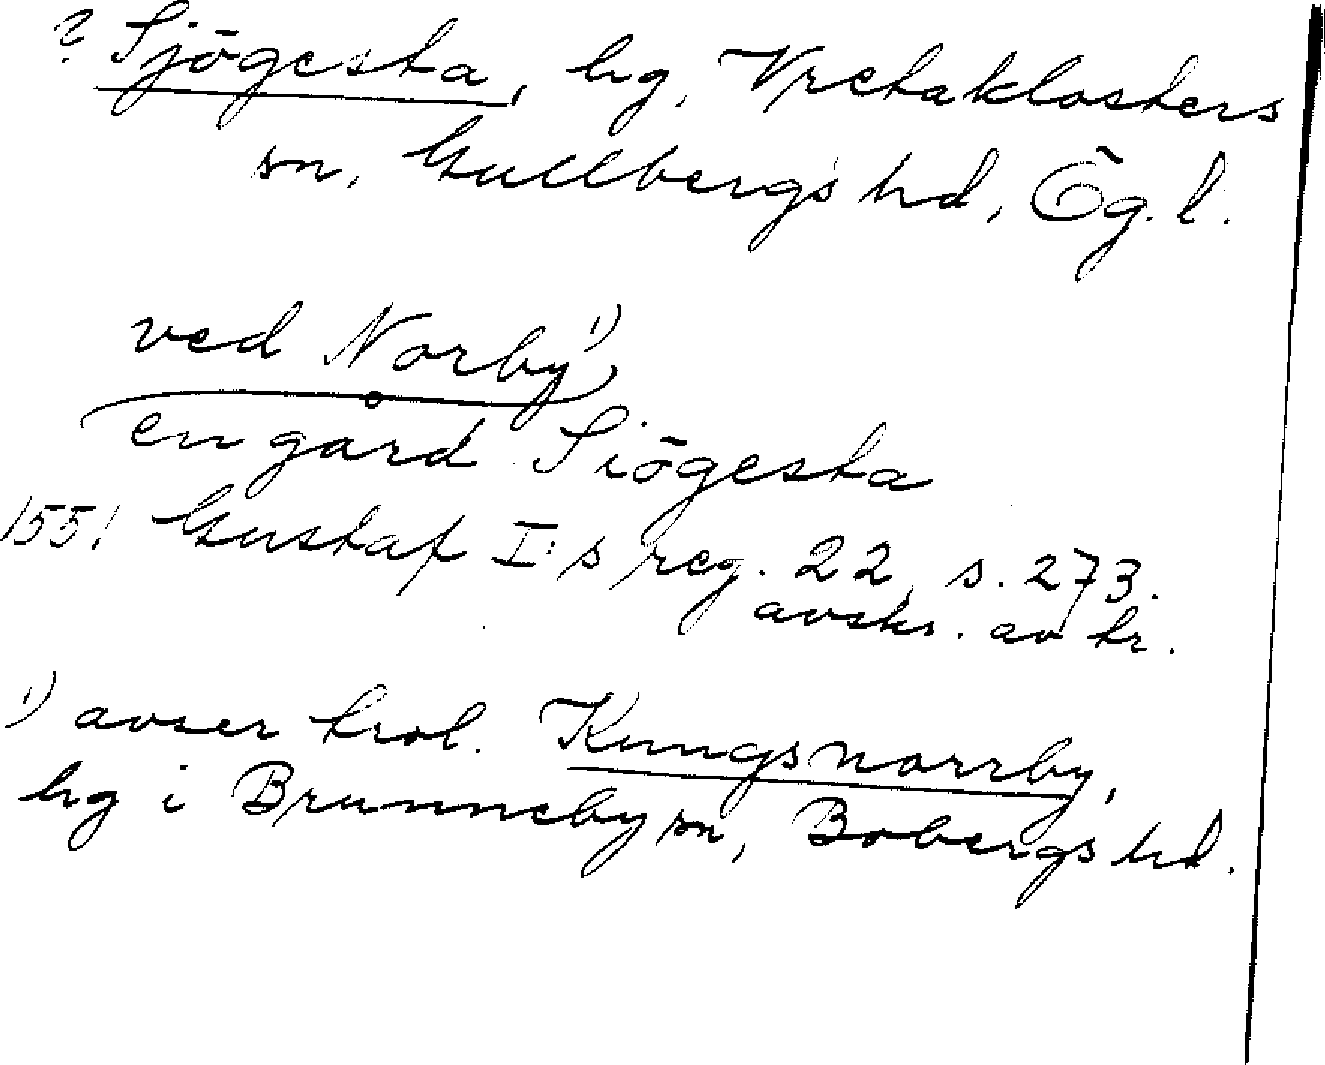 ? Sjögesta, hg, Vretaklosters
sn, Gullbergs hd, Ög. l.
ved Norby¹),
en gård Siögesta
1551 Gustaf I:s reg. 22, s. 273.
avskr. av tr.
¹) avser trol. Kungsnorrby,
hg i Brunneby sn, Bobergs hd.